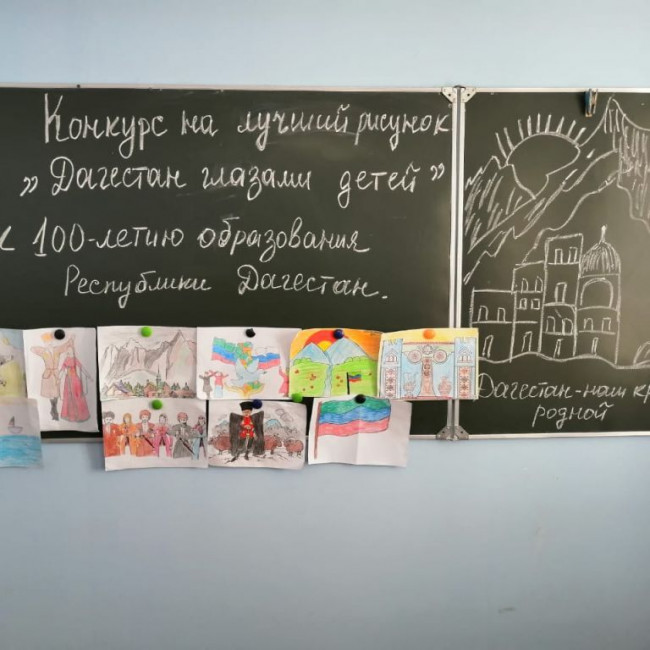 Конкурс на лучший рисунок
„Дагестан глазами детей”
к 100-летию образования
Республики Дагестан.
Дагестан-наш кр
родной